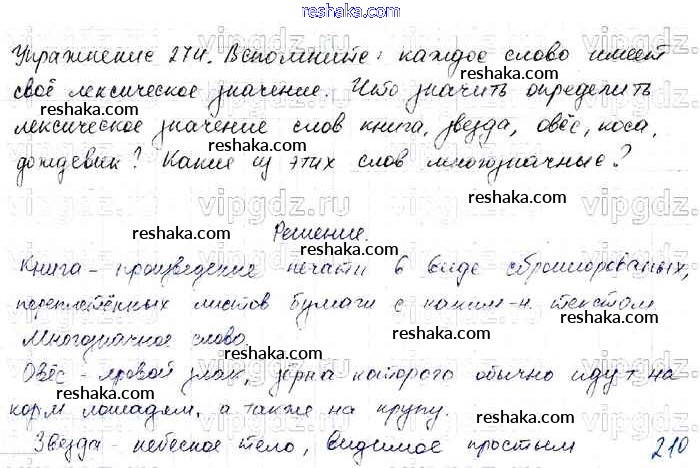 reshaka.com
Упражнение 274. Вспомните: каждое слово имеет
своё лексическое значение. Что значить определить
reshaka.com reshaka.com
лексическое значение слов книга, звезда, овёс, коса,
reshaka.com
дождевик? Какие из этих слов многозначные?
vipgdz.ru vipgdz.ru vipgdz.ru
reshaka.com Решение. reshaka.com
Книга - произведение печати в виде сброшюрованых,
reshaka.com
переплетённых листов бумаги с каким-н. текстом
vipgdz.ru vipgdz.ru vipgdz.ru
Многозначное слово.
reshaka.com reshaka.com
Овёс - яровой злак, зёрна которого обычно идут на
корм лошадям, а также на крупу.
reshaka.com
Звезда - небесное тело, видимое простым 210
reshaka.com reshaka.com